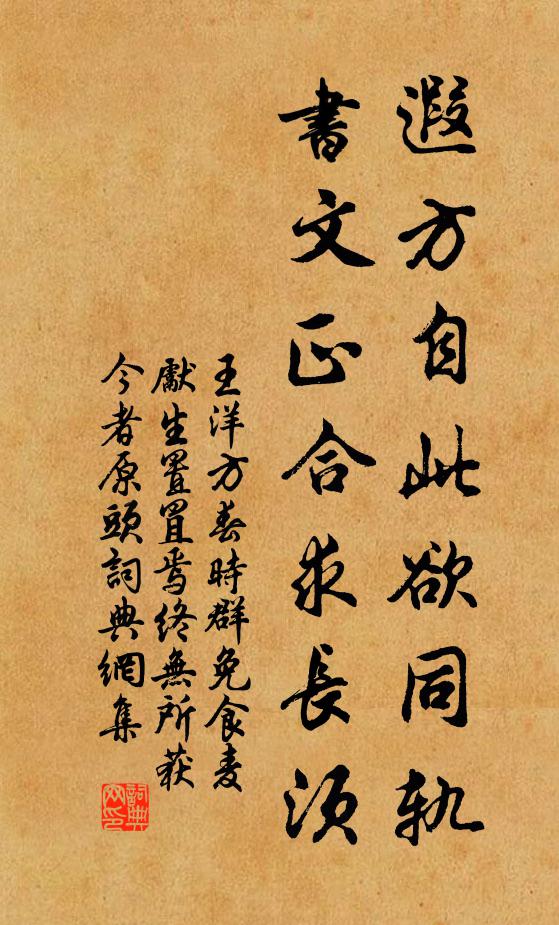 遐方自此欲同軌
書文正合求長須
王洋方春時群兔食麦
獻生置罝焉終無所获
今者原頭詞典網集
詞典
网印